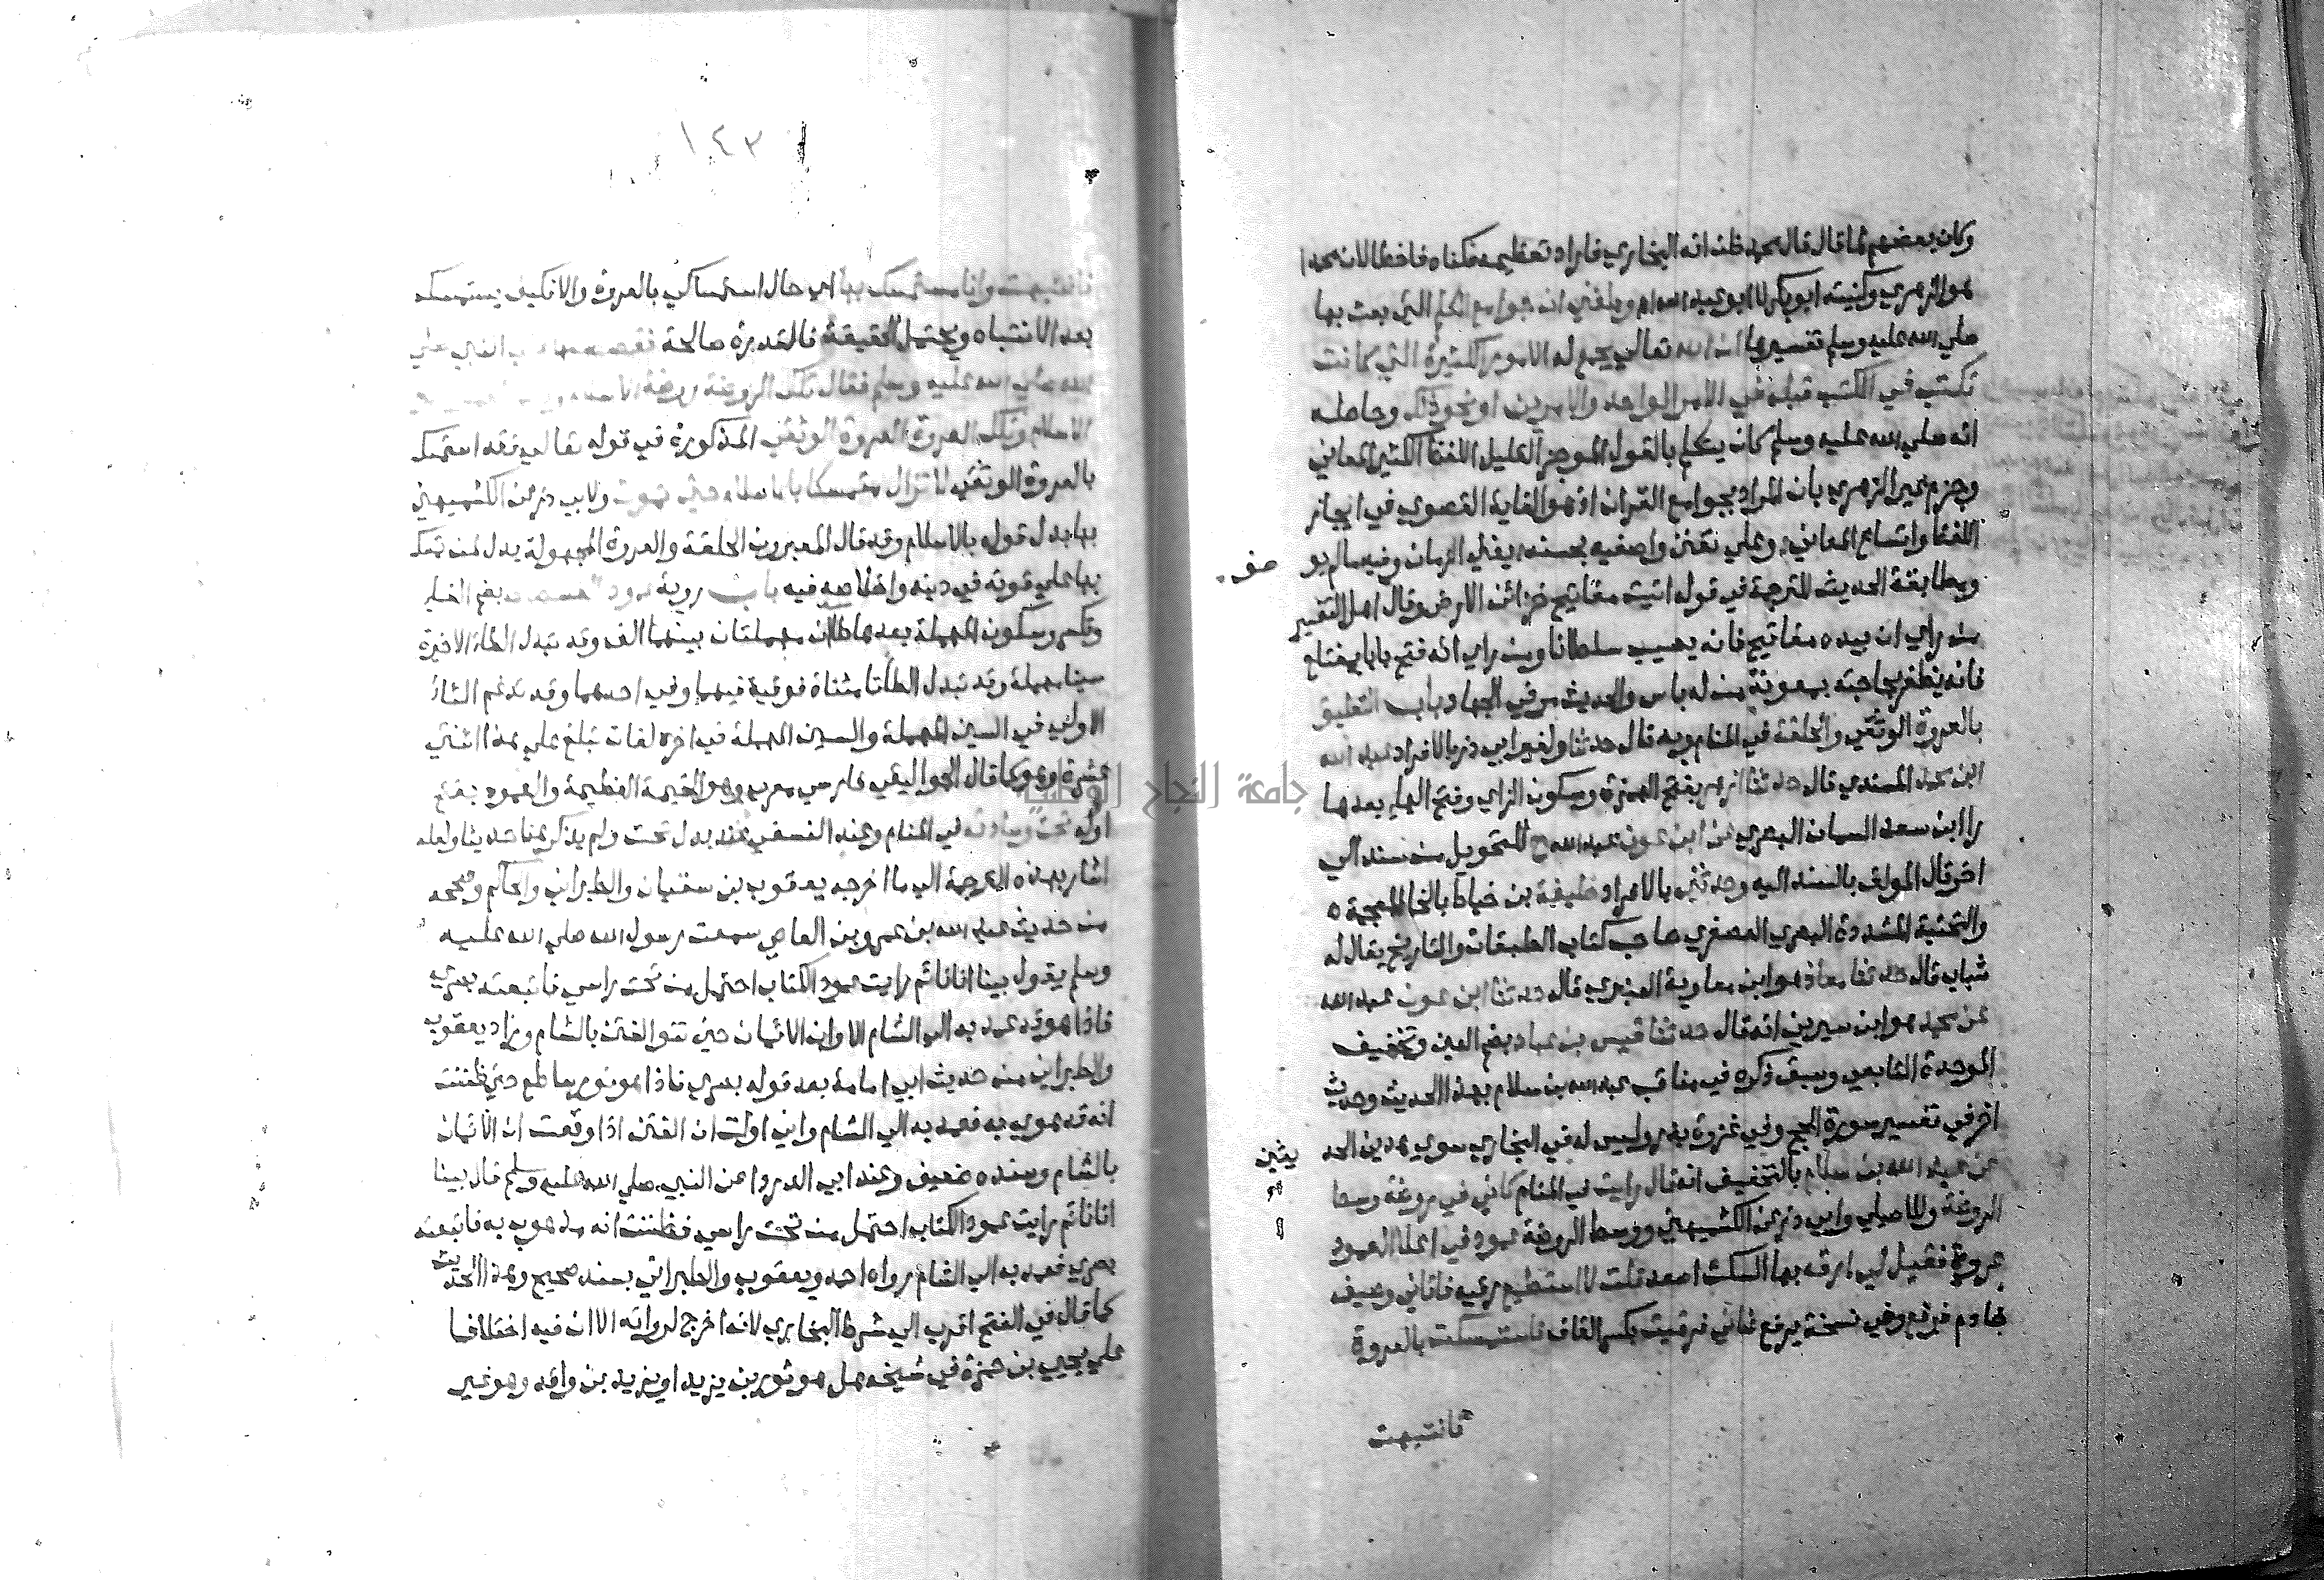 وكان بعضهم لما قال قال محمد ظن انه البخاري فاراد تعظيمه فكناه فاخطا لان محمدا
هو الزهري وكنيته ابو بكر لا ابو عبد الله اه وبلغني ان جوامع الكلم التي بعث بها
صلي الله عليه وسلم تفسيرها ان الله تعالي يجمع له الامور الكثيرة التي كانت
تكتب في الكتب قبله في الامر الواحد والامرين او نحو ذلك وحاصله
انه صلي الله عليه وسلم كان يتكلم بالقول الموجز القليل اللفظ الكثير المعاني
وجزم غير الزهري بان المراد بجوامع القران اذ هو الغاية القصوي في ايجاز
اللفظ واتساع المعاني وعلي تفنن واصفيه بحسنه يفني الزمان وفيه ما لم يو صف
ومطابقة الحديث للترجمة في قوله اتيت مفاتيح خزائن الارض وقال اهل التعبير
من راي ان بيده مفاتيح فانه يصيب سلطانا ومن راي انه فتح بابا بمفتاح
فانه يظفر بحاجته بمعونة من له باس والحديث مر في الجهاد باب التعليق
بالعروة الوثقي والحلقة في المنام وبه قال حدثنا ولغير ابي ذر بالافراد عبد الله
ابن محمد المسندي قال حدثنا ازهر بفتح الهمزة وسكون الزاي وفتح الهاء بعدها
را ابن سعد السمان البصري عن ابن عون عبد الله ح للتحويل من سند الي
اخر قال المولف بالسند اليه وحدثني بالافراد خليفة بن خياط بالخا المعجمة
والتحتية المشددة البصري العصفري صاحب كتاب الطبقات والتاريخ يقال له
شباب قال حدثنا معاذ هو ابن معاوية العنبري قال حدثنا ابن عون عبد الله
عن محمد هو ابن سيرين انه قال حدثنا قيس بن عباد بضم العين وتخفيف
الموحدة التابعي وسبق ذكره في مناقب عبد الله بن سلام بهذا الحديث وحديث
اخر في تفسير سورة الحج وفي غزوة بدر وليس له في البخاري سوي هذين الحد يثين
عن عبد الله بن سلام بالتخفيف انه قال رايت في المنام كاني في روضة وسط
الروضة وللاصيلي وابي ذر عن الكشميهني ووسط الروضة عمود في اعلا العمود
عروة فقيل لي ارقه بها السكت اصعد قلت لا استطيع رقيه فاتاني وصيف
خادم فرفع وفي نسخة يرفع ثيابي فرقيت بكسر القاف فاستمسكت بالعروة
فانتبهت
١٤٢
فانتبهت وانا مستمسك بها اي حال استمساكي بالعروة والا فكيف يستمسك
بعد الانتباه ويحتمل الحقيقة فالقدرة صالحة فقصصتها علي النبي صلي
الله عليه وسلم فقال تلك الروضة روضة الاسلام
الاسلام وتلك العروة العروة الوثقي المذكورة في قوله تعالي فقد استمسك
بالعروة الوثقي لا تزال متمسكا بالاسلام حتي تموت ولابي ذر عن الكشميهني
بها بدل قوله بالاسلام وقد قال المعبرون الحلقة والعروة المجهولة يدل لمن تمسك
بها علي قوته في دينه واخلاصه فيه باب روية عمود بضم الفاء
وتكسر وسكون المهملة بعدها طاآن مهملتان بينهما الف وقد تبدل الطاء الاخيرة
سينا مهملة وقد تبدل الطاء تا مثناة فوقية فيهما وفي احدهما وقد تدغم التاء
الاولي في السين المهملة والسين المهملة في اخره لغات تبلغ علي هذا اثنتي
عشرة وهو كما قال الجواليقي فارسي معرب وهو الخيمة العظيمة والعمود بفتح
اوله تحت وسادته في المنام وعند النسفي عند بدل تحت ولم يذكر هنا حديثا ولعله
اشار بهذه الترجمة الي ما اخرجه يعقوب بن سفيان والطبراني والحاكم وصححه
من حديث عبد الله بن عمرو بن العاص سمعت رسول الله صلي الله عليه
وسلم يقول بينا انا نائم رايت عمود الكتاب احتمل من تحت راسي فاتبعته بصري
فاذا هو قد عمد به الي الشام الا وان الايمان حين تقع الفتن بالشام وزاد يعقوب
والطبراني من حديث ابي امامة بعد قوله بصري فاذا هو نور ساطع حتي ظننت
انه قد هوي به فعمد به الي الشام واني اولت ان الفتن اذا وقعت ان الايمان
بالشام وسنده ضعيف وعند ابي الدردا عن النبي صلي الله عليه وسلم قال بينا
انا نائم رايت عمود الكتاب احتمل من تحت راسي فظننت انه مذهوب به فاتبعته
بصري فعمد به الي الشام رواه احمد ويعقوب والطبراني بسند صحيح وهذا الحديث
كما قال في الفتح اقرب الي شرط البخاري لانه اخرج لرواته الا ان فيه اختلافا
علي يحيي بن حمزة في شيخه هل هو ثور بن يزيد او زيد بن واقد وهو غير
جامعة النجاح الوطنية